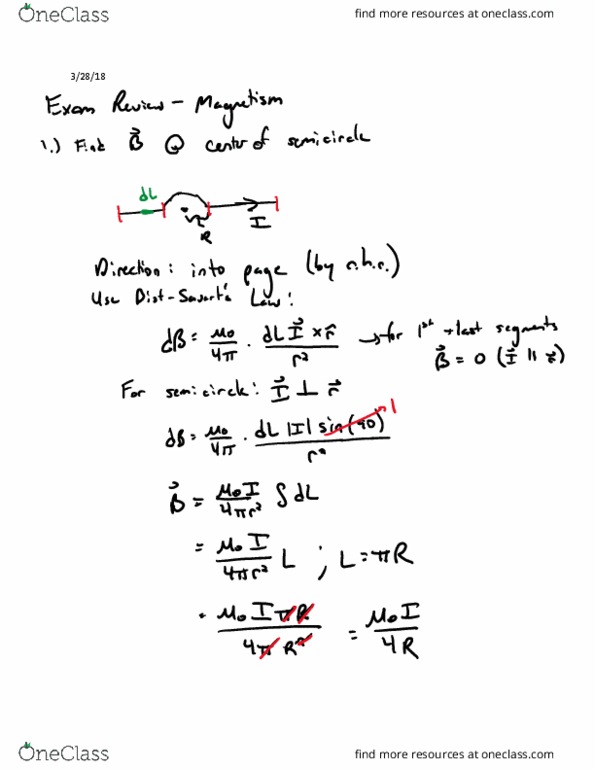 OneClass
find more resources at oneclass.com
3/28/18
Exam Review - Magnetism
1.) Find B⃗ @ center of semicircle
dL
R
I
Direction: into page (by r.h.r.)
Use Biot-Savart's Law:
dB = μ₀/4π · dL I⃗ × r̂ / r² → for 1st + last segments
B⃗ = 0 (I⃗ || r⃗)
For semicircle: I⃗ ⊥ r⃗
dB = μ₀/4π · dL |I| sin(90) / r² 1
B⃗ = μ₀I/4πr² ∫ dL
= μ₀I/4πr² L ; L = πR
= μ₀IπR/4πR² = μ₀I/4R
OneClass
find more resources at oneclass.com